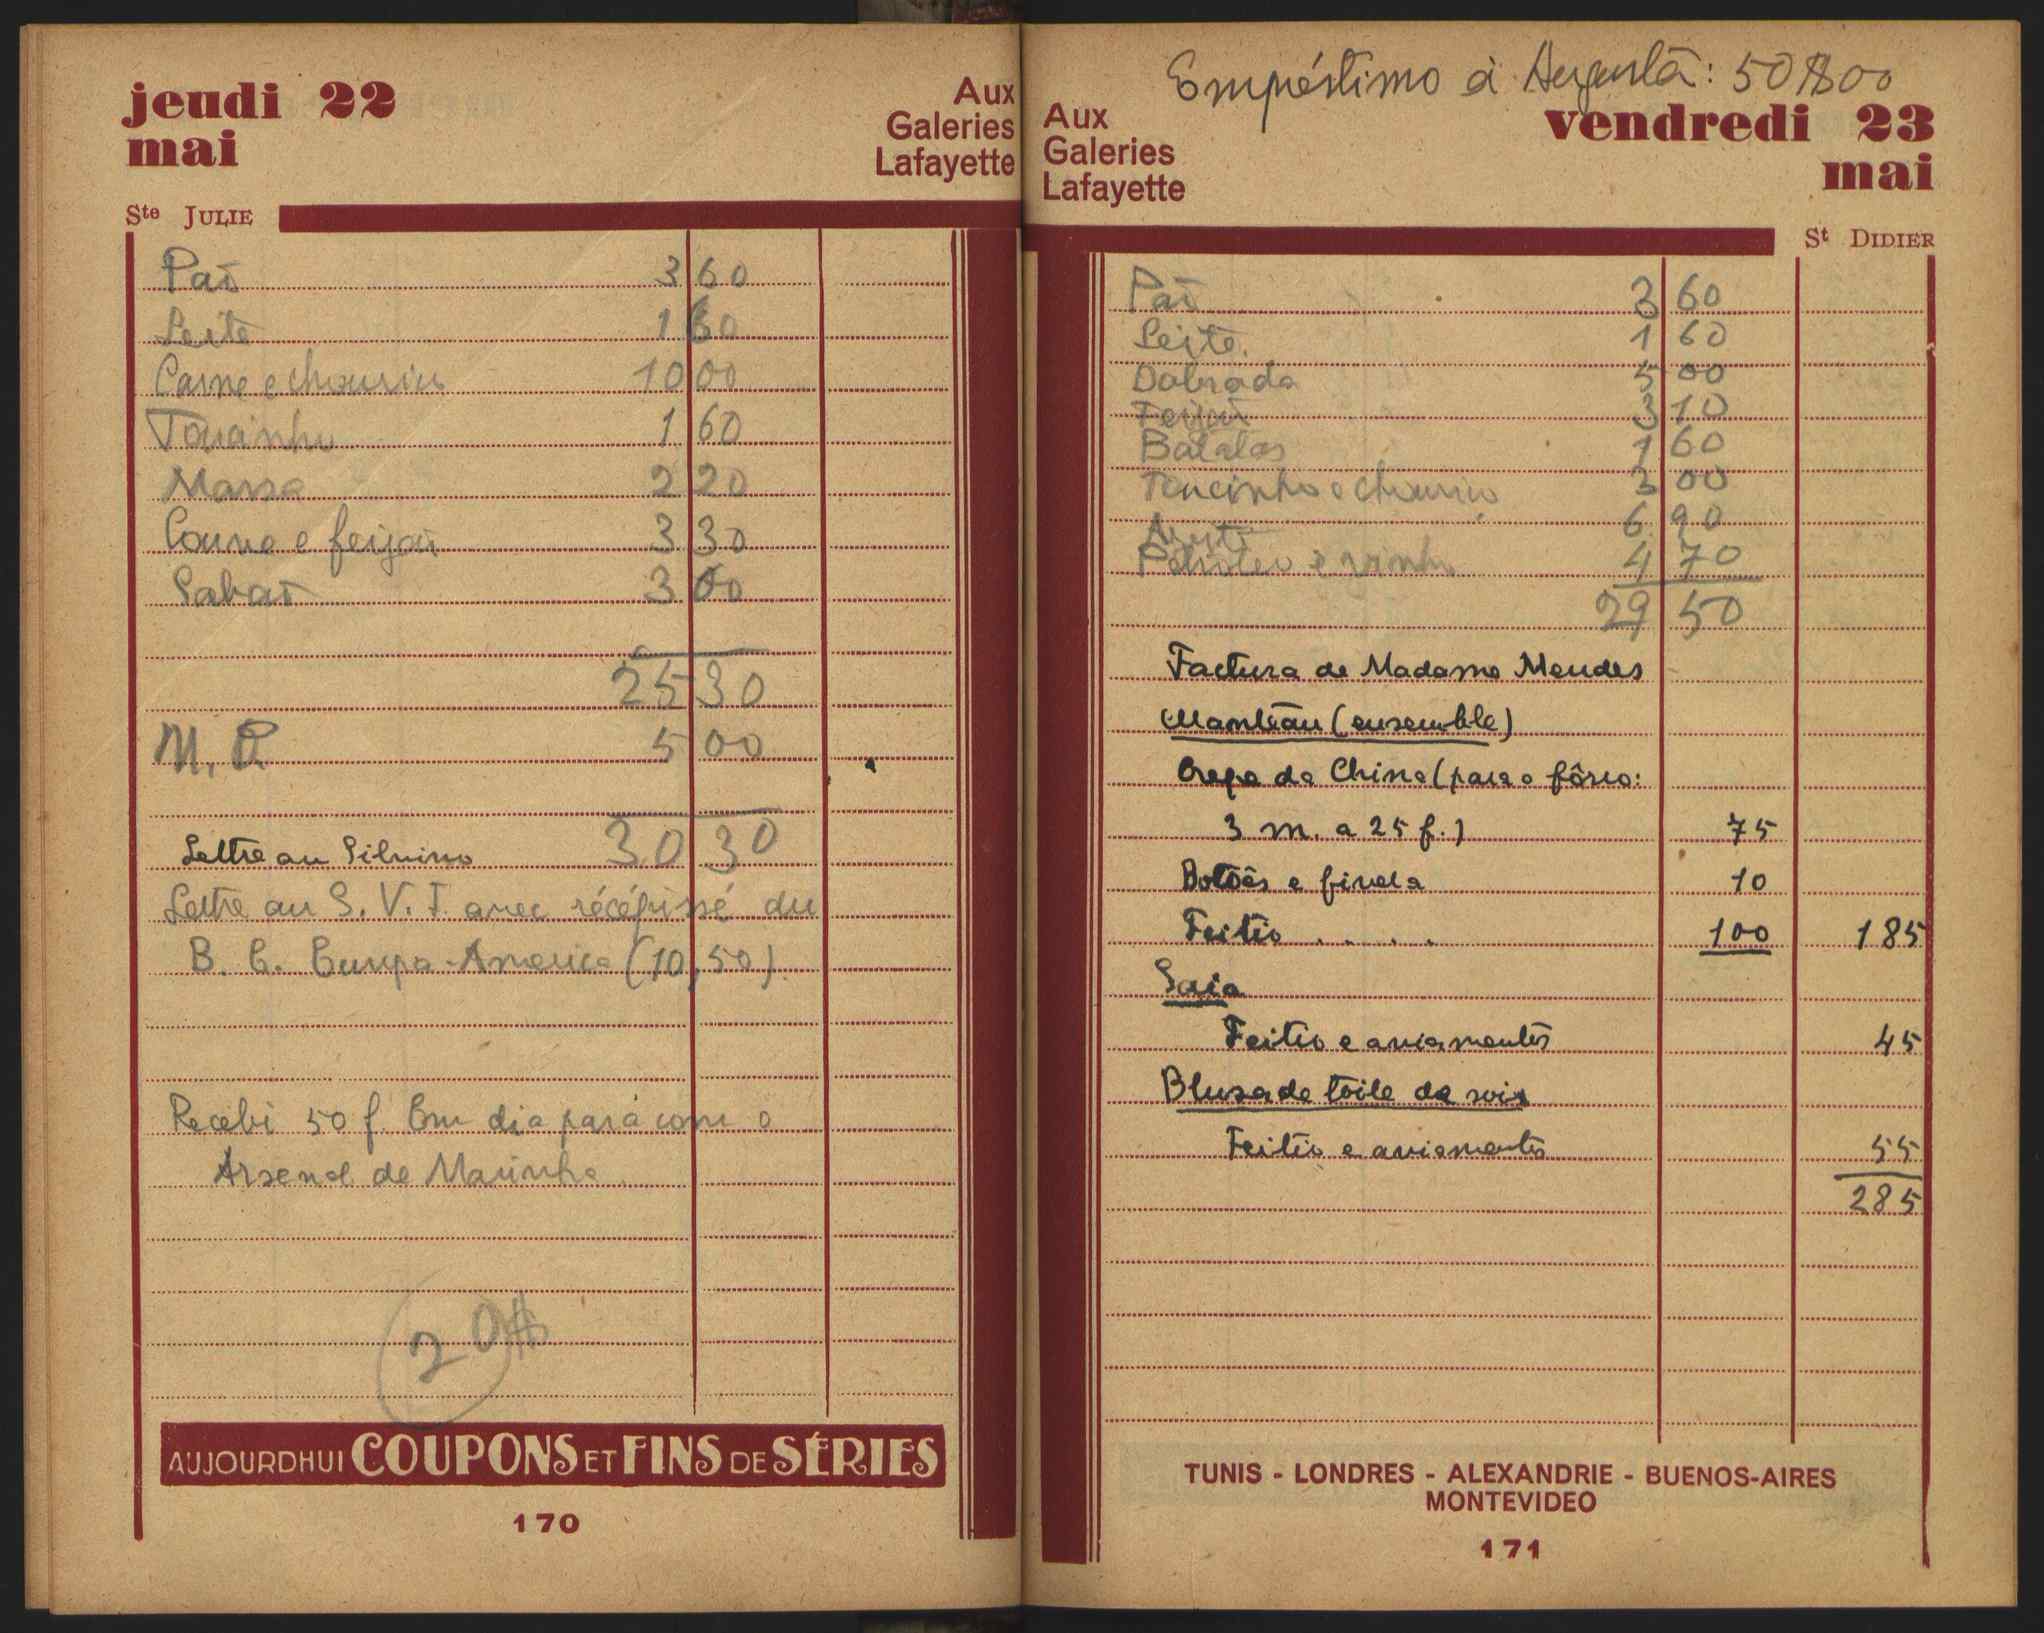 jeudi 22
mai
Aux
Galeries
Lafayette
Ste JULIE
Pão 3 60
Leite 1 60
Carne e chouriço 10 00
Toucinho 1 60
Massa 2 20
Couve e feijão 3 30
Sabão 3 00
25 30
M. P. 5 00
30 30
Lettre au Silvino
Lettre au S. V. I. avec récépissé du
B. C. Europa-America (10,50)
Recebi 50 f. Em dia para com o
Arsenal de Marinha.
20$
AUJOURDHUI COUPONS ET FINS DE SÉRIES
170
Empréstimo à Augusta: 50$00
Aux
Galeries
Lafayette
vendredi 23
mai
St DIDIER
Pão 3 60
Leite. 1 60
Dobrada 5 00
Feijão 3 10
Batatas 1 60
Toucinho e chouriço 3 00
Azeite 6 90
Petróleo e vinho 4 70
29 50
Factura de Madame Mendes
Manteau (ensemble)
Crepe da China (para o fôrro:
3 m. a 25 f.) 75
Botões e fivela 10
Feitio . . . . 100 185
Saia
Feitio e aviamentos 45
Blusa de toile de soie
Feitio e aviamentos 55
285
TUNIS - LONDRES - ALEXANDRIE - BUENOS-AIRES
MONTEVIDEO
171